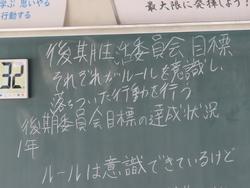 学ぶ 思いやる
行動する
最大限に発揮しよう!
32
後期生活委員会目標
それぞれがルールを意識し
落ちついた行動を行う
後期委員会目標の達成状況
1年
ルールは意識できているけど